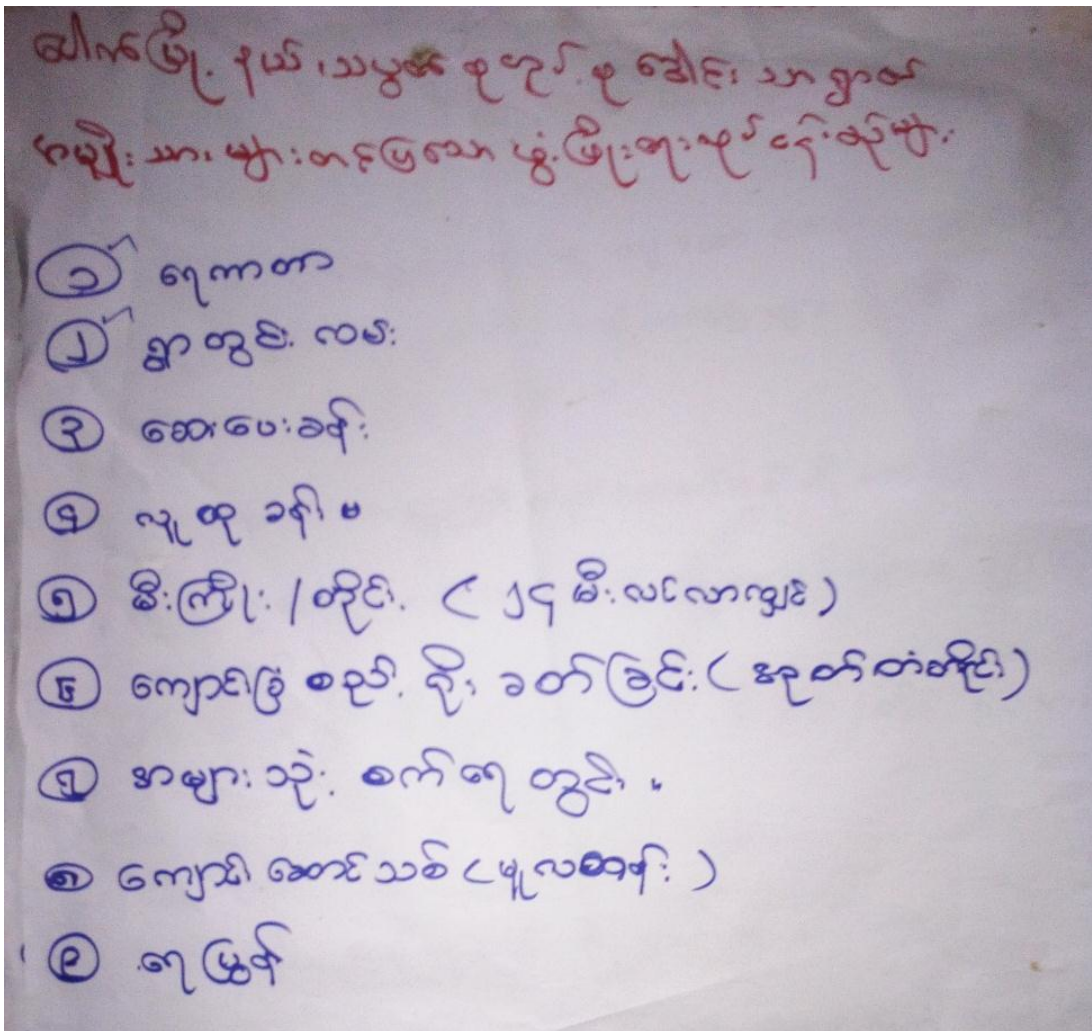 ပေါက်မြို့နယ်၊ သပွတ်စုကုပ်စု ခေါင်းသာရွာ၏
အမျိုးသားများတင်ပြသော ဖွံ့ဖြိုးရေးလုပ်ငန်းစဉ်များ
၁ ရေကာတာ
၂ ရွာတွင်းလမ်း
၃ ဆေးပေးခန်း
၄ လူထုခန်းမ
၅ မီးကြိုး/တိုင်း (၂၄ မီးလင်လာလျှင်)
၆ ကျောင်းခြံစည်းရိုးခတ်ခြင်း (အုတ်တံတိုင်း)
၇ အများသုံးစက်ရေတွင်း
၈ ကျောင်းဆောင်သစ် (မူလတန်း)
၉ ရေမြွန်